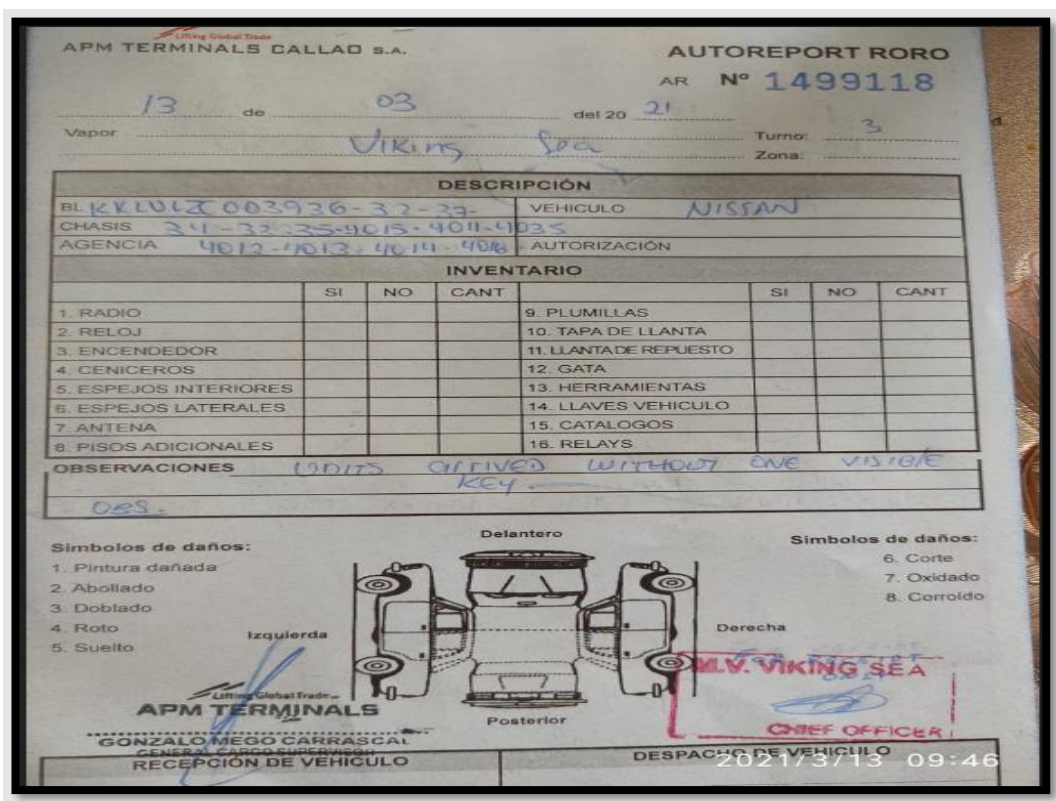 Lifting Global Trade
APM TERMINALS CALLAO S.A.
AUTOREPORT RORO
AR Nº 1499118
13 de 03 del 20 21
Vapor Viking Sea Turno: 3
Zona:
DESCRIPCIÓN
BL KKLULZC003936-32-37- VEHICULO NISSAN
CHASIS 34-32-35-4015-4011-4035
AGENCIA 4012-4013-4014-4016 AUTORIZACIÓN
INVENTARIO
SI NO CANT SI NO CANT
1. RADIO 9. PLUMILLAS
2. RELOJ 10. TAPA DE LLANTA
3. ENCENDEDOR 11. LLANTA DE REPUESTO
4. CENICEROS 12. GATA
5. ESPEJOS INTERIORES 13. HERRAMIENTAS
6. ESPEJOS LATERALES 14. LLAVES VEHICULO
7. ANTENA 15. CATALOGOS
8. PISOS ADICIONALES 16. RELAYS
OBSERVACIONES UNITS arrived WITHOUT ONE VISIBLE
KEY
OBS.
Delantero
Simbolos de daños: Simbolos de daños:
1. Pintura dañada 6. Corte
2. Abollado 7. Oxidado
3. Doblado 8. Corroído
4. Roto
5. Suelto
Izquierda Derecha
M.V. VIKING SEA
Lifting Global Trade
APM TERMINALS
Posterior
CHIEF OFFICER
GONZALO MEGO CARRASCAL
GENERAL CARGO SUPERVISOR
RECEPCIÓN DE VEHICULO DESPACHO DE VEHICULO
2021/3/13 09:46